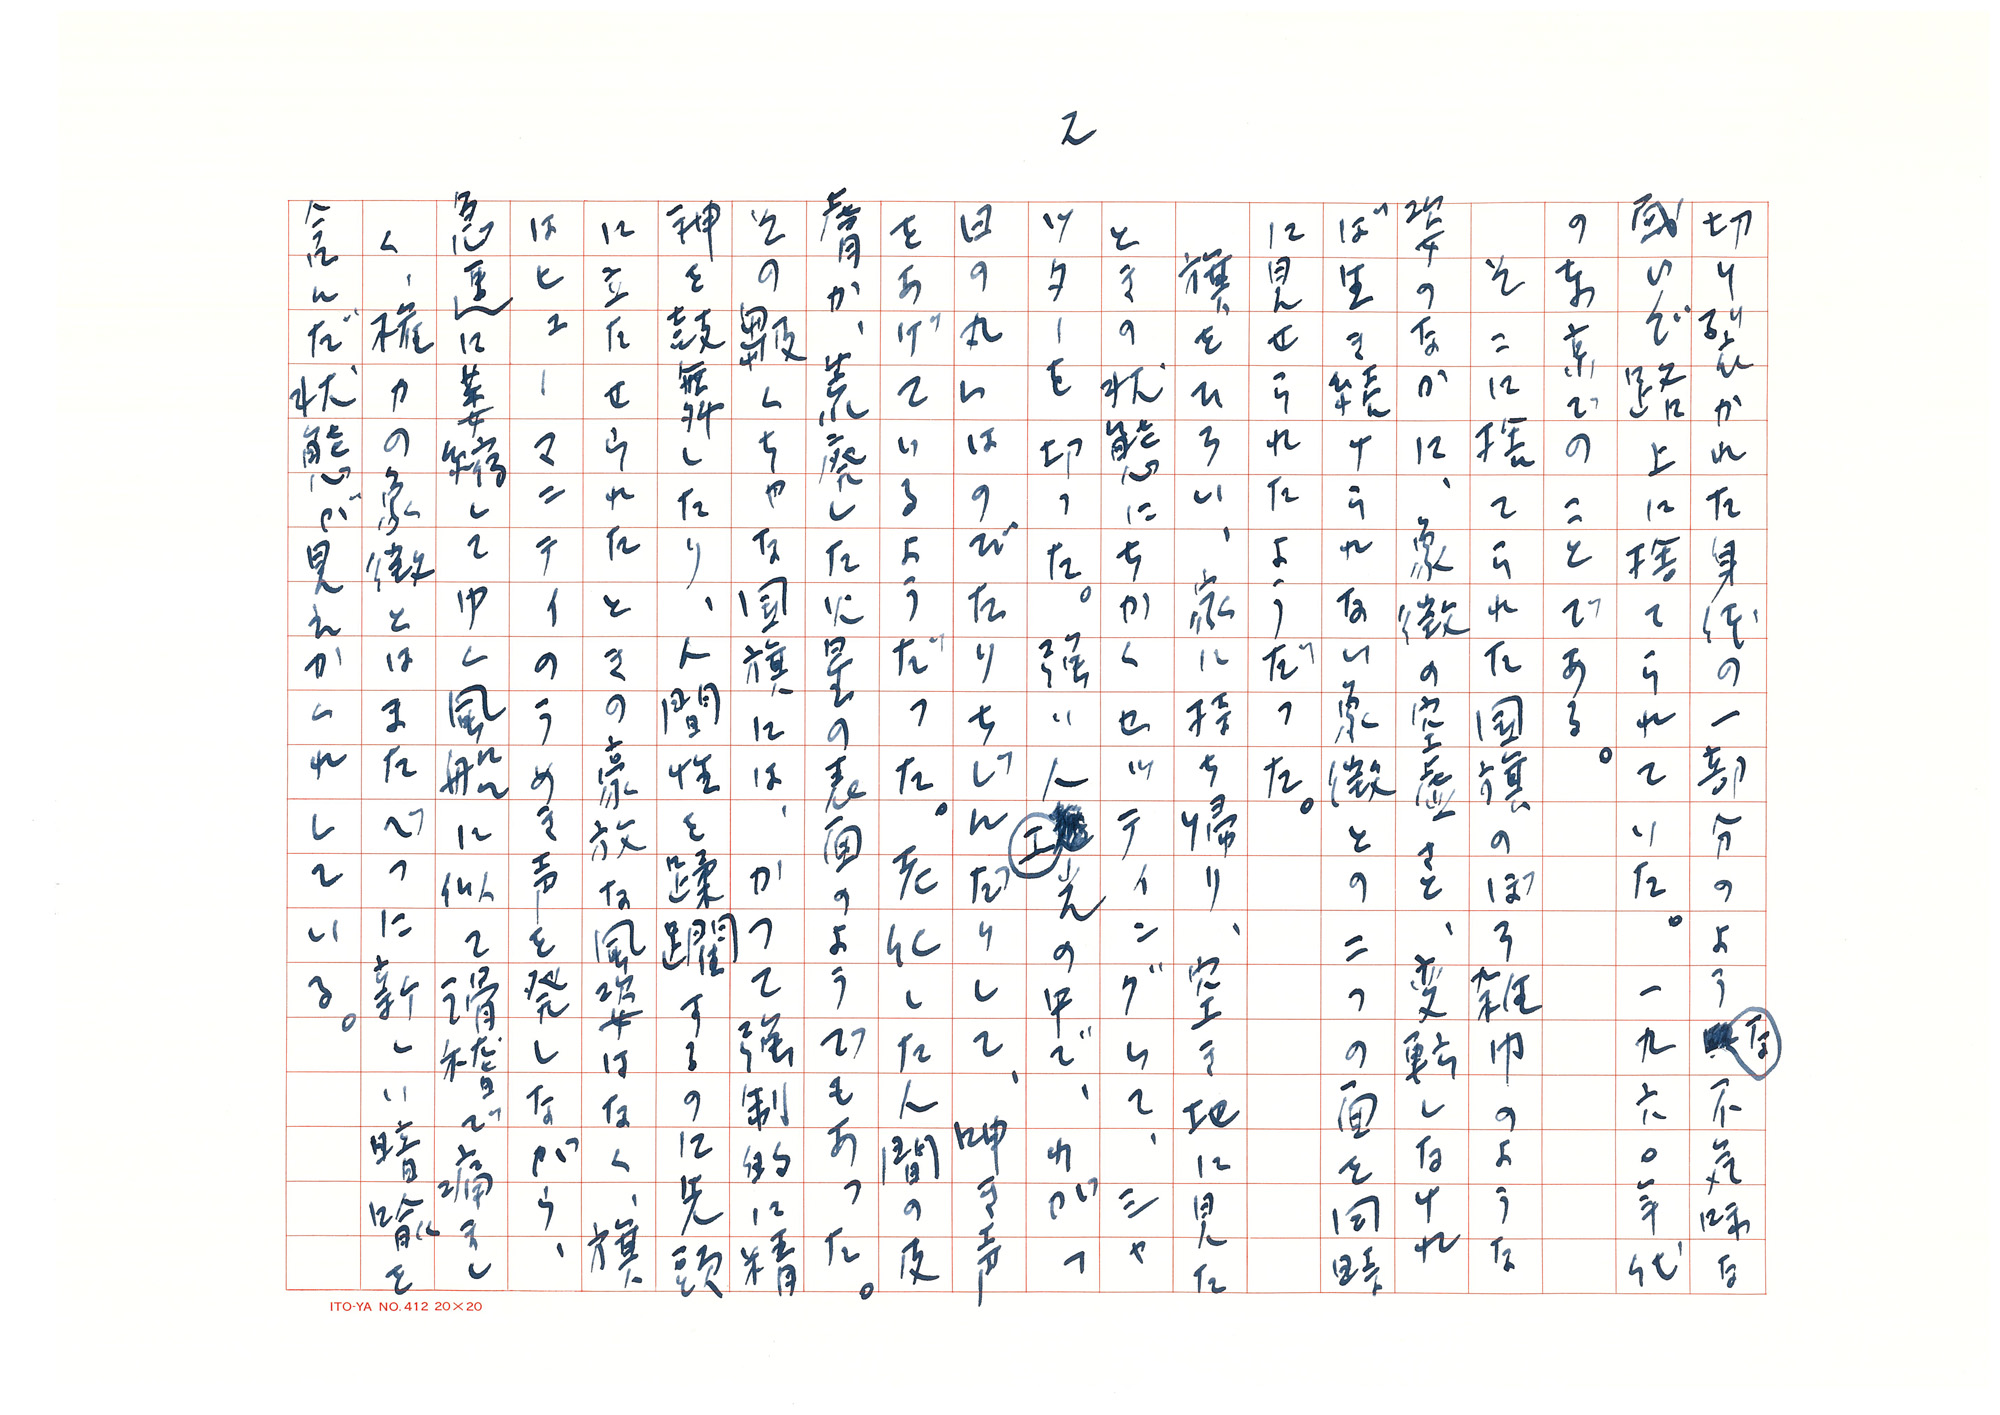 2
切り裂かれた身体の一部分のような不気味な
感じで路上に捨てられていた。一九六〇年代
の東京でのことである。
そこに捨てられた国旗のぼろ雑巾のような
姿のなかに、象徴の空虚さと、変転しなけれ
ば生き続けられない象徴との二つの面を同時
に見せられたようだった。
旗をひろい、家に持ち帰り、空き地に見た
ときの状態にちかくセッティングして、シャ
ッターを切った。強い人工光の中で、わがつ
日の丸いはのびたりちじんだりして、呻き声
をあげているようだった。死化した人間の皮
膚か、荒廃した火星の表面のようでもあった。
その皺くちゃな国旗には、かつて強制的に精
神を鼓舞したり、人間性を蹂躙するのに先頭
に立たせられたときの豪放な風姿はなく、旗
はヒューマニティのうめき声を発しながら、
急速に萎縮してゆく風船に似て滑稽で痛まし
く、権力の象徴とはまたべつに新しい暗喩を
含んだ状態が見えかくれしている。
ITO-YA NO.412 20×20